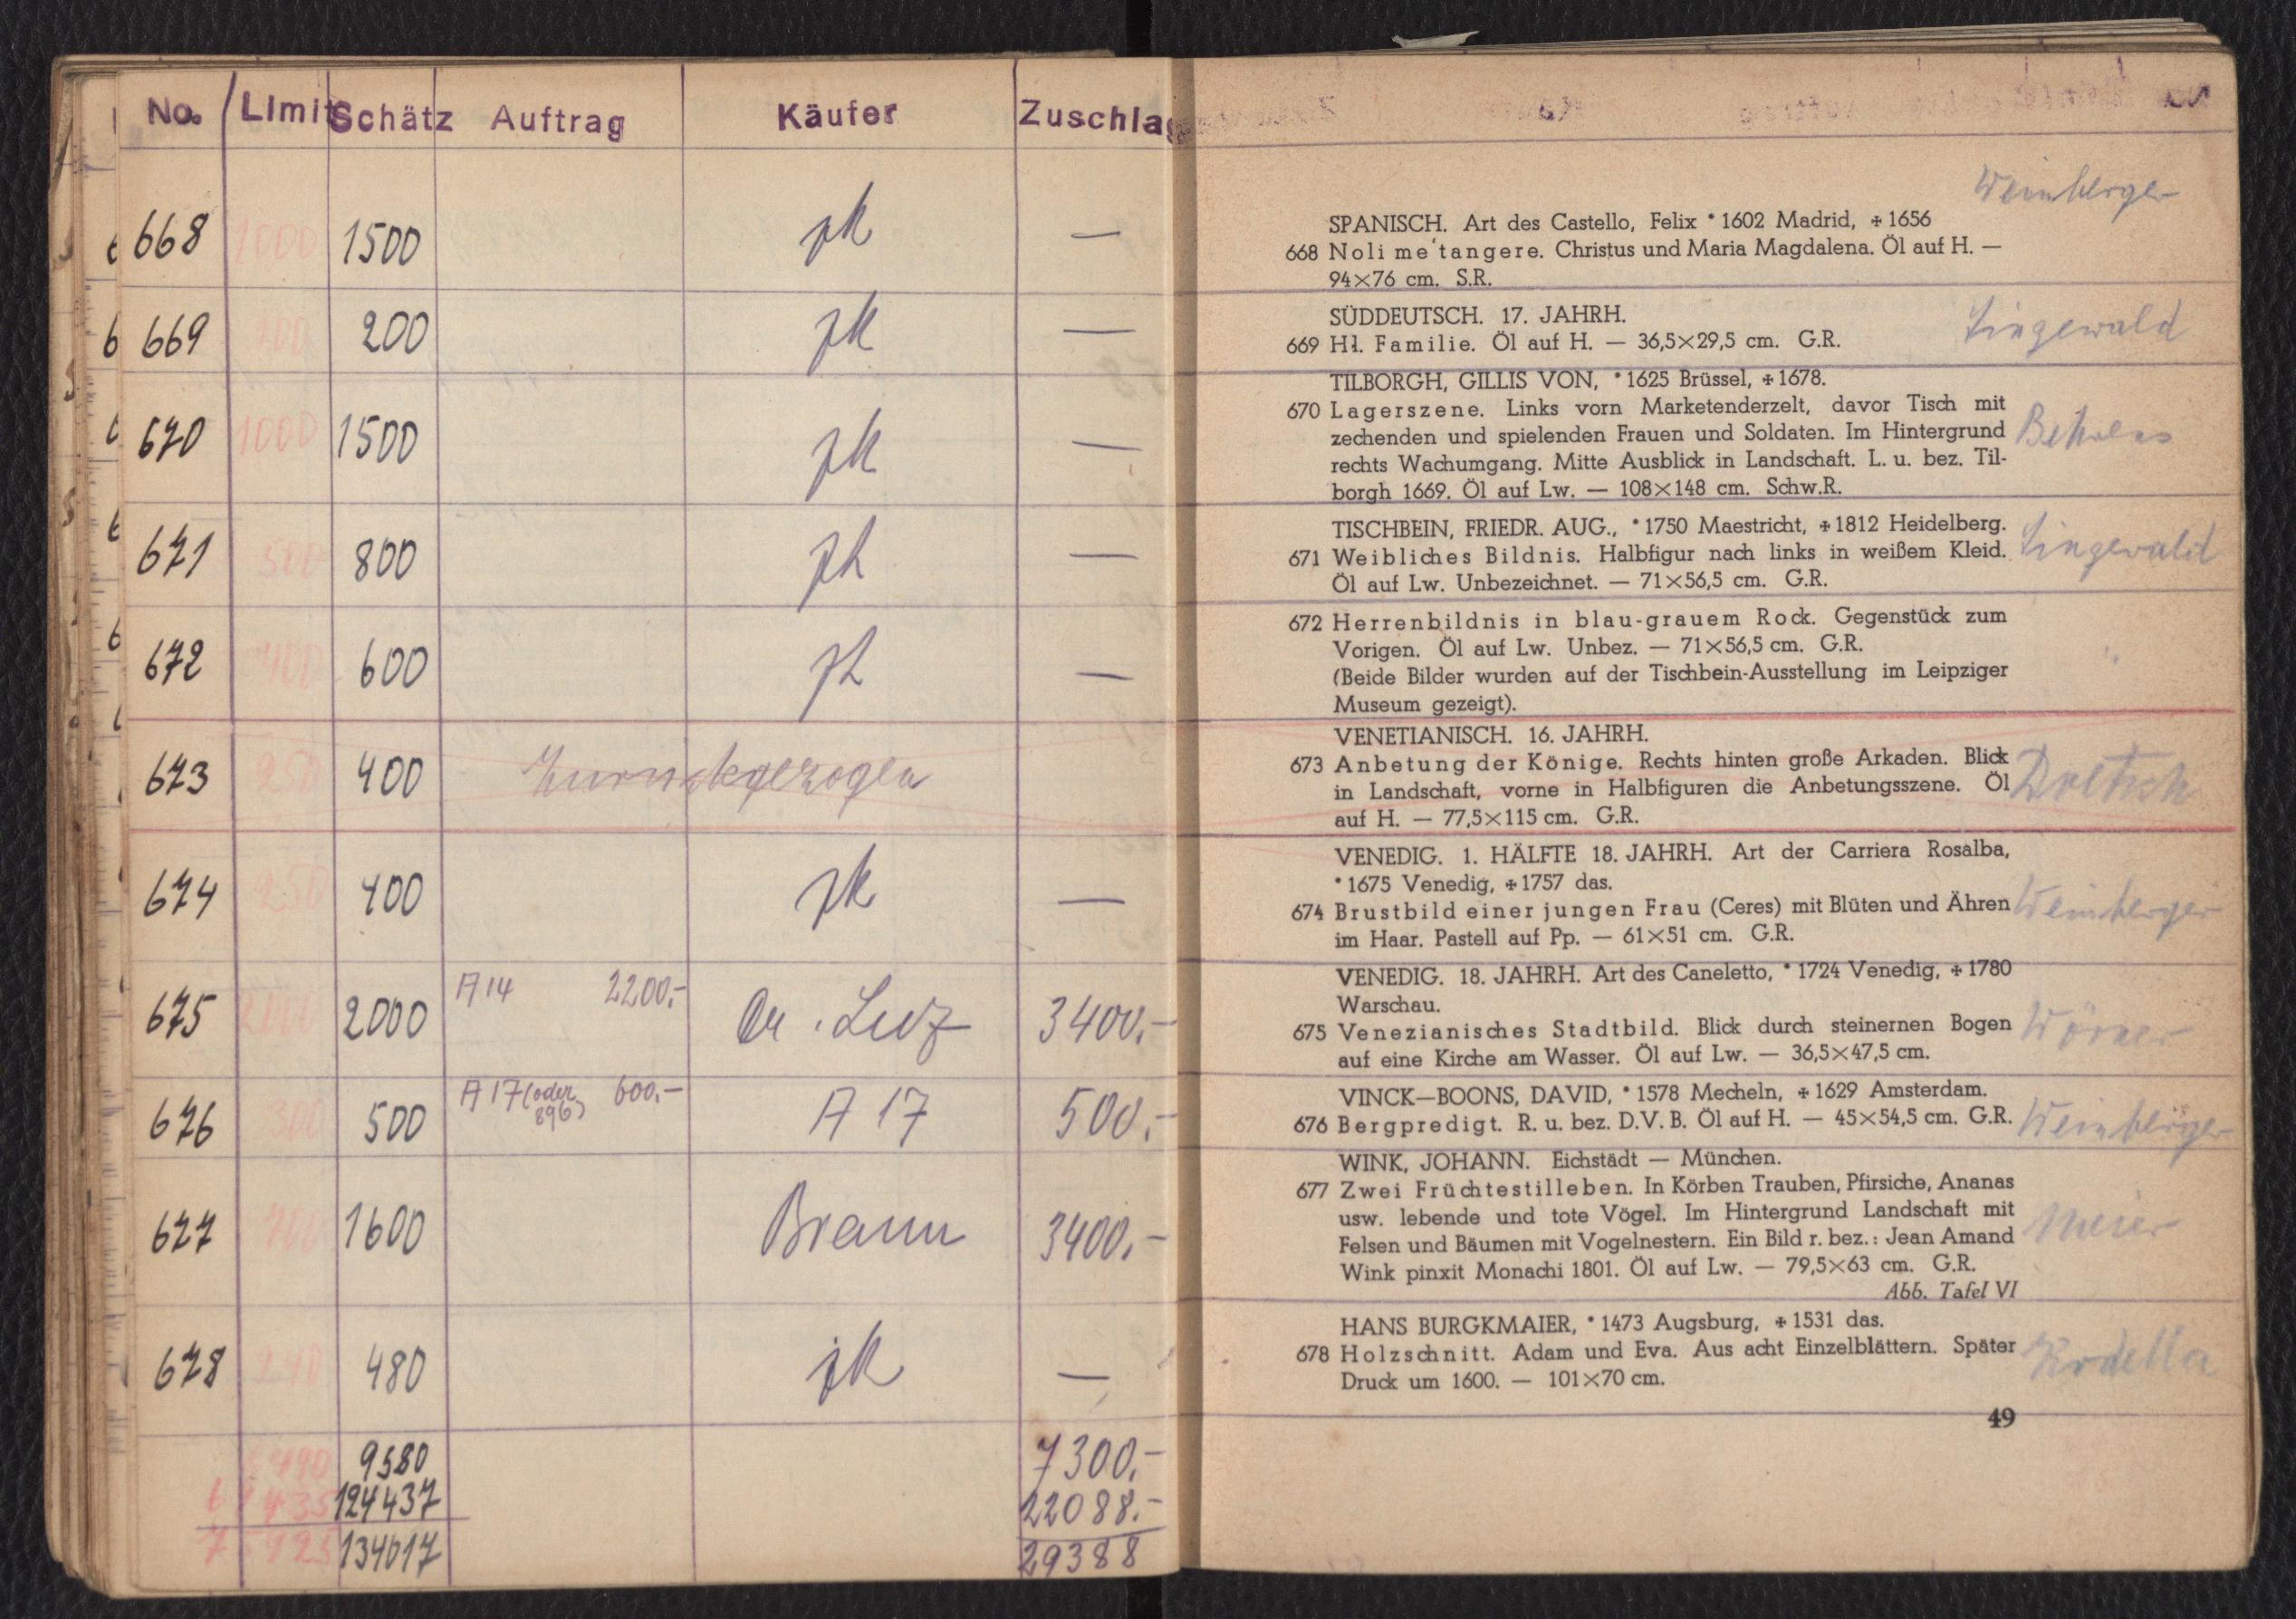 No. Limit Schätz Auftrag Käufer Zuschlag
668 1000 1500 zk —
669 100 200 zk —
670 1000 1500 zk —
671 500 800 zk —
672 400 600 zk —
673 250 400 Zurückgezogen
674 250 400 zk —
675 2000 A 14 2200.- Dr. 3400.-
676 300 500 A 17 (oder 896) 600.- A 17 500.-
677 700 1600 Braun 3400.-
678 240 480 zk —
9580 7300.-
124437 22088.-
134017 29388
Weinberger
SPANISCH. Art des Castello, Felix * 1602 Madrid, ✠ 1656
668 Noli me tangere. Christus und Maria Magdalena. Öl auf H. —
94×76 cm. S.R.
SÜDDEUTSCH. 17. JAHRH.
669 Hl. Familie. Öl auf H. — 36,5×29,5 cm. G.R. Lingewald
TILBORGH, GILLIS VON, * 1625 Brüssel, ✠ 1678.
670 Lagerszene. Links vorn Marketenderzelt, davor Tisch mit
zechenden und spielenden Frauen und Soldaten. Im Hintergrund Behrens
rechts Wachumgang. Mitte Ausblick in Landschaft. L. u. bez. Til-
borgh 1669. Öl auf Lw. — 108×148 cm. Schw.R.
TISCHBEIN, FRIEDR. AUG., * 1750 Maestricht, ✠ 1812 Heidelberg.
671 Weibliches Bildnis. Halbfigur nach links in weißem Kleid. Lingewald
Öl auf Lw. Unbezeichnet. — 71×56,5 cm. G.R.
672 Herrenbildnis in blau-grauem Rock. Gegenstück zum
Vorigen. Öl auf Lw. Unbez. — 71×56,5 cm. G.R. "
(Beide Bilder wurden auf der Tischbein-Ausstellung im Leipziger
Museum gezeigt).
VENETIANISCH. 16. JAHRH.
673 Anbetung der Könige. Rechts hinten große Arkaden. Blick
in Landschaft, vorne in Halbfiguren die Anbetungsszene. Öl
auf H. — 77,5×115 cm. G.R.
VENEDIG. 1. HÄLFTE 18. JAHRH. Art der Carriera Rosalba,
* 1675 Venedig, ✠ 1757 das.
674 Brustbild einer jungen Frau (Ceres) mit Blüten und Ähren Weinberger
im Haar. Pastell auf Pp. — 61×51 cm. G.R.
VENEDIG. 18. JAHRH. Art des Caneletto, * 1724 Venedig, ✠ 1780
Warschau.
675 Venezianisches Stadtbild. Blick durch steinernen Bogen Wörner
auf eine Kirche am Wasser. Öl auf Lw. — 36,5×47,5 cm.
VINCK—BOONS, DAVID, * 1578 Mecheln, ✠ 1629 Amsterdam.
676 Bergpredigt. R. u. bez. D.V.B. Öl auf H. — 45×54,5 cm. G.R. Weinberger
WINK, JOHANN. Eichstädt — München.
677 Zwei Früchtestilleben. In Körben Trauben, Pfirsiche, Ananas
usw. lebende und tote Vögel. Im Hintergrund Landschaft mit Meier
Felsen und Bäumen mit Vogelnestern. Ein Bild r. bez.: Jean Amand
Wink pinxit Monachi 1801. Öl auf Lw. — 79,5×63 cm. G.R.
Abb. Tafel VI
HANS BURGKMAIER, * 1473 Augsburg, ✠ 1531 das.
678 Holzschnitt. Adam und Eva. Aus acht Einzelblättern. Später
Druck um 1600. — 101×70 cm.
49